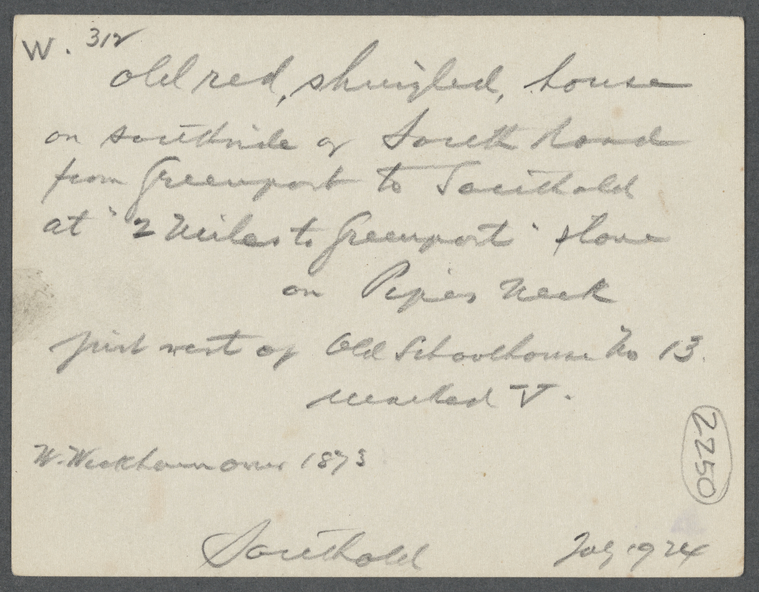 W. 312
old red, shingled, house
on southside of South Road
from Greenport to Southold
at "2 Miles to Greenport" stone
on Pipes Neck
just west of Old Schoolhouse No 13.
marked V.
W. Wickham owner 1873
2250
Southold July 1924